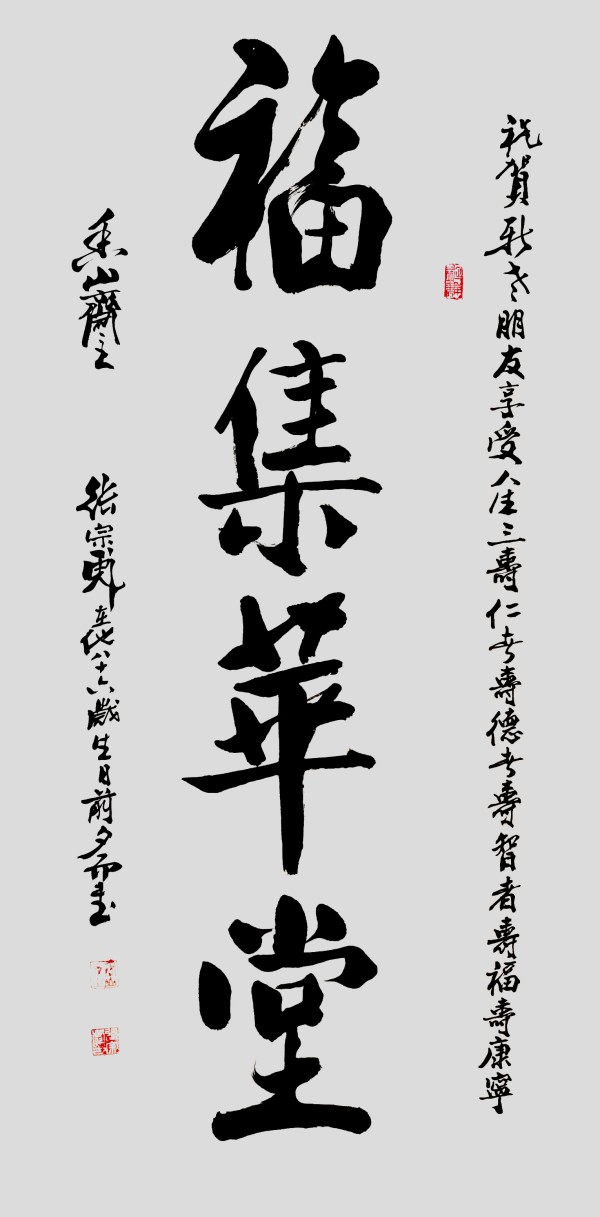 祝賀新老朋友享受人生三壽仁者壽德者壽智者壽福壽康寧
福集華堂
山齋主
宗 在他八十六歲生日前夕而書